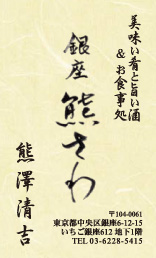 美味い肴と旨い酒
& お食事処
銀座 熊さわ
熊澤清吉
〒104-0061
東京都中央区銀座6-12-15
いちご銀座612 地下1階
TEL 03-6228-5415